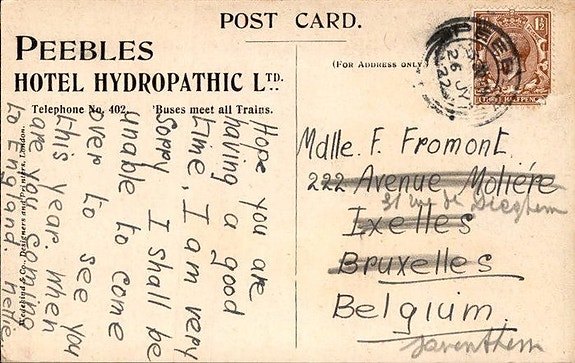 POST CARD.
PEEBLES
HOTEL HYDROPATHIC LTD.
Telephone No. 402. 'Buses meet all Trains.
Hope you are
having a good
time, I am very
sorry I shall be
unable to come
over to see you
this year. When
are you coming
to England. Nettie.
& Co., Designers and Printers, London.
(For Address only)
PEEB
26 JY
22
THREE HALFPENCE
1½
Mdlle. F. Fromont.
222 Avenue Moliére
31 rue de Dieghem
Ixelles
Bruxelles
Belgium.
Saventhem